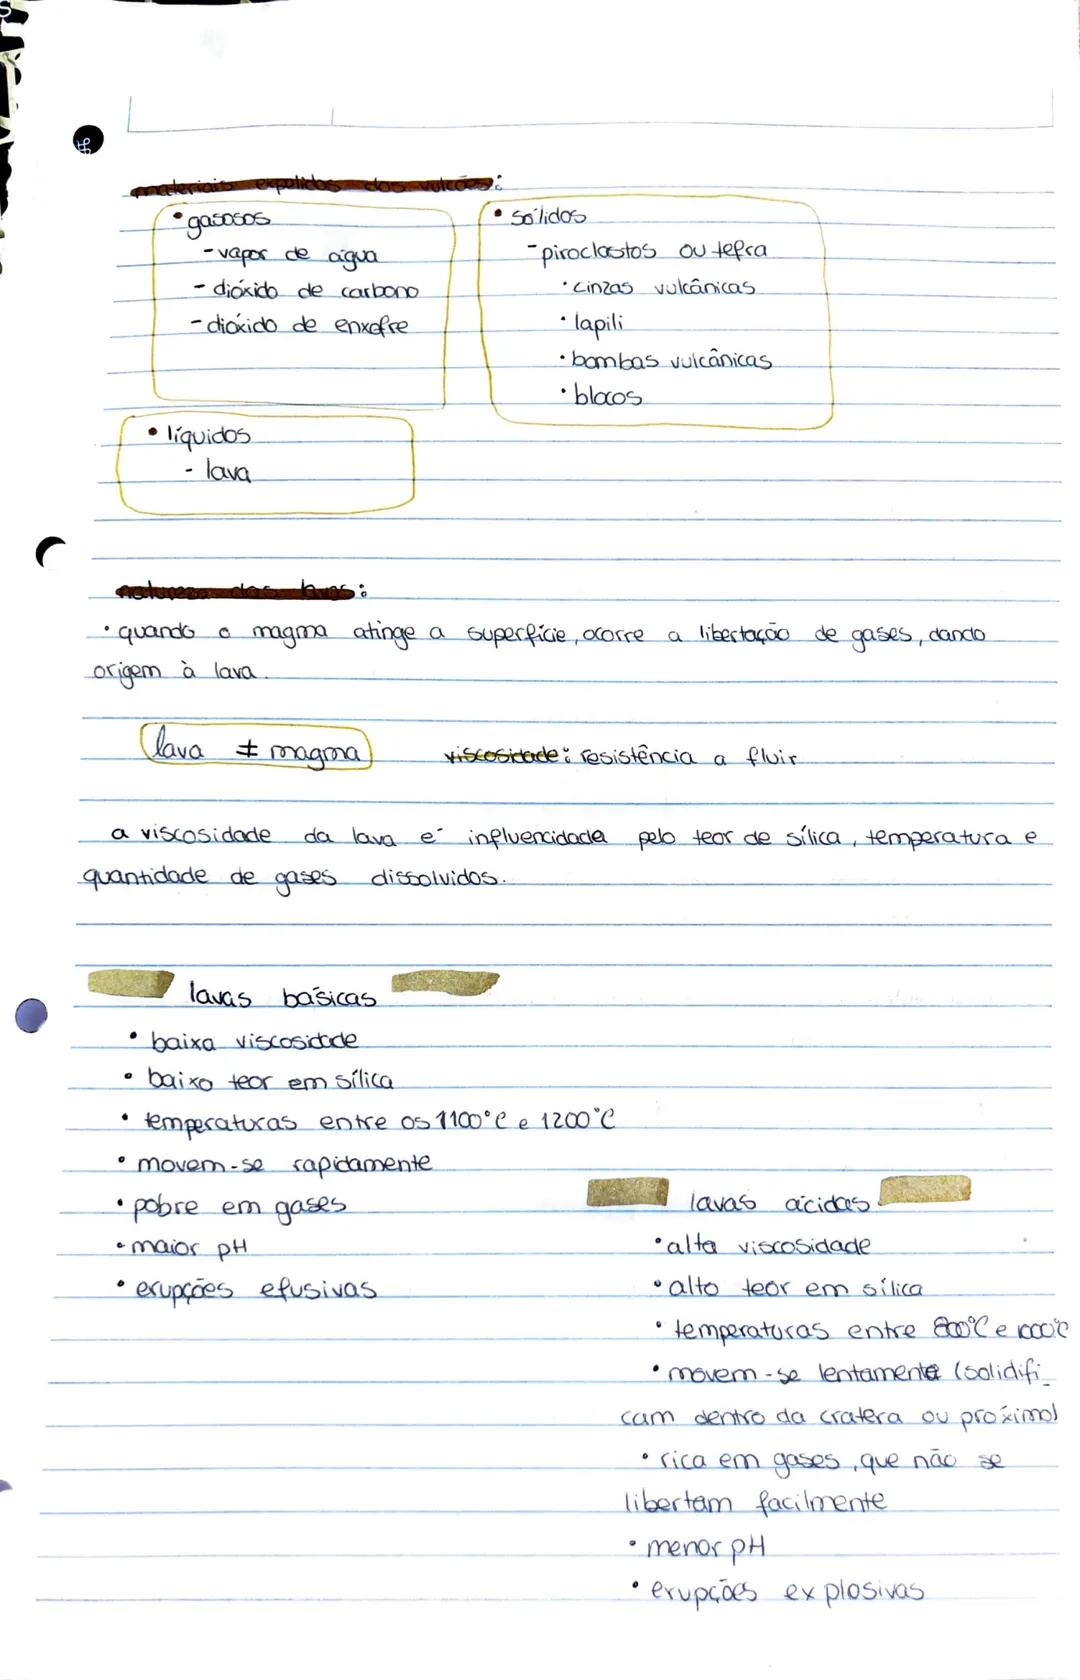 materiais expelidos dos vulcões:
• gasosos
- vapor de água
- dióxido de carbono
- dióxido de enxofre
• sólidos
- piroclastos ou tefra
• cinzas vulcânicas
• lapili
• bombas vulcânicas
• blocos
• líquidos
- lava
natureza das lavas:
• quando o magma atinge a superfície, ocorre a libertação de gases, dando
origem à lava.
lava ≠ magma
viscosidade: resistência a fluir
a viscosidade da lava é influencidada pelo teor de sílica, temperatura e
quantidade de gases dissolvidos.
lavas básicas
• baixa viscosidade
• baixo teor em sílica
• temperaturas entre os 1100°C e 1200°C
• movem-se rapidamente
• pobre em gases
• maior pH
• erupções efusivas
lavas ácidas
• alta viscosidade
• alto teor em sílica
• temperaturas entre 800°C e 1000°C
• movem-se lentamente (solidifi_
cam dentro da cratera ou próximo)
• rica em gases, que não se
libertam facilmente
• menor pH
• erupções explosivas